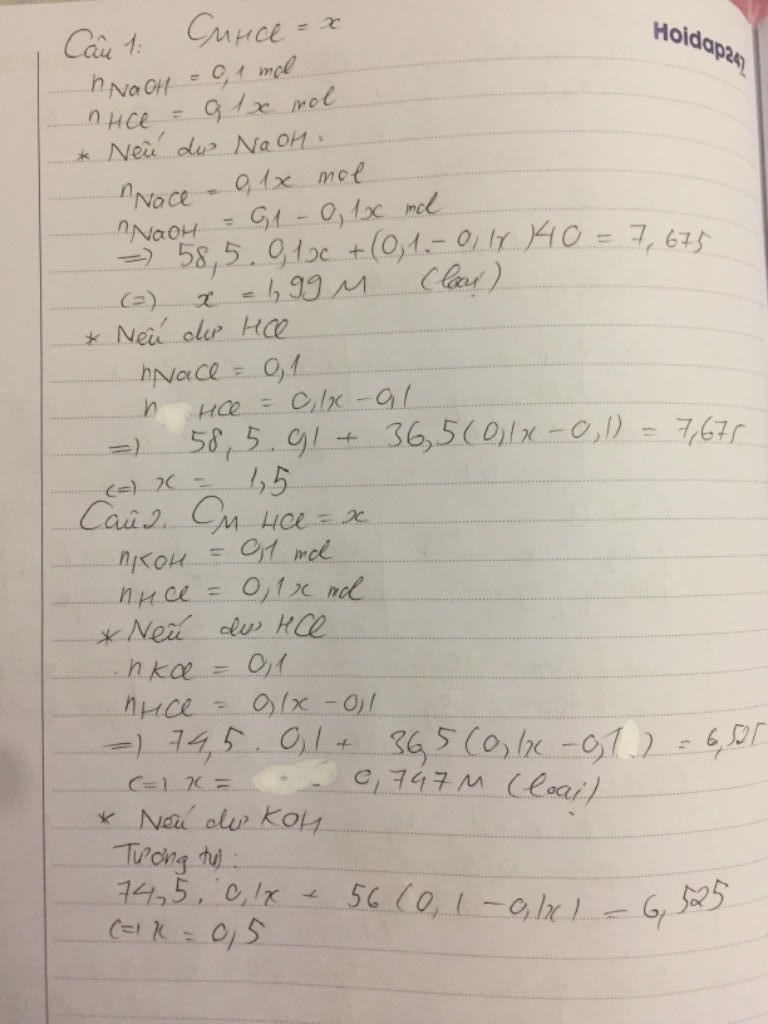 Hoidap247
Câu 1: CM HCl = x
nNaOH = 0,1 mol
nHCl = 0,1x mol
* Nếu dư NaOH:
nNaCl = 0,1x mol
nNaOH = 0,1 - 0,1x mol
=) 58,5.0,1x + (0,1.-0,1x)40 = 7,675
(=) x = 1,99 M (loại)
* Nếu dư HCl
nNaCl = 0,1
n HCl = 0,1x - 0,1
=) 58,5.0,1 + 36,5(0,1x - 0,1) = 7,675
(=) x = 1,5
Câu 2. CM HCl = x
nKOH = 0,1 mol
nHCl = 0,1x mol
* Nếu dư HCl
nKCl = 0,1
nHCl = 0,1x - 0,1
=) 74,5.0,1 + 36,5(0,1x - 0,1) = 6,525
(=) x = 0,747M (loại)
* Nếu dư KOH
Tương tự:
74,5.0,1x + 56(0,1 - 0,1x) = 6,525
(=) x = 0,5